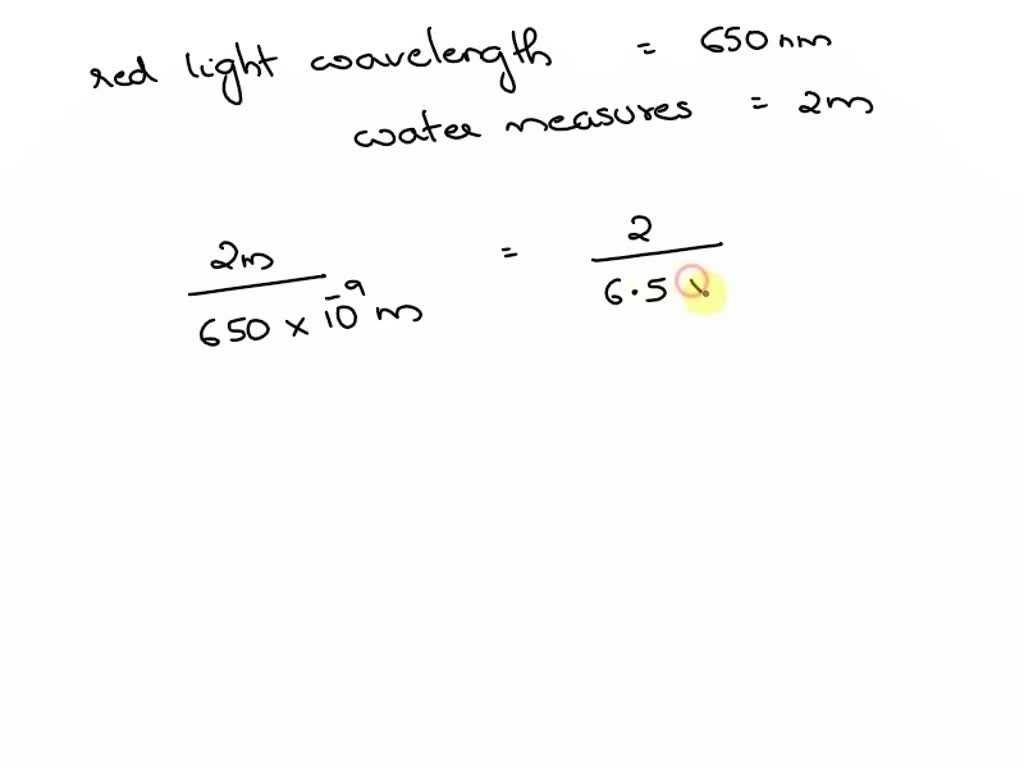 red light wavelength = 650 nm
water measures = 2m
2m / 650 × 10⁻⁹ m = 2 / 6.5 ×